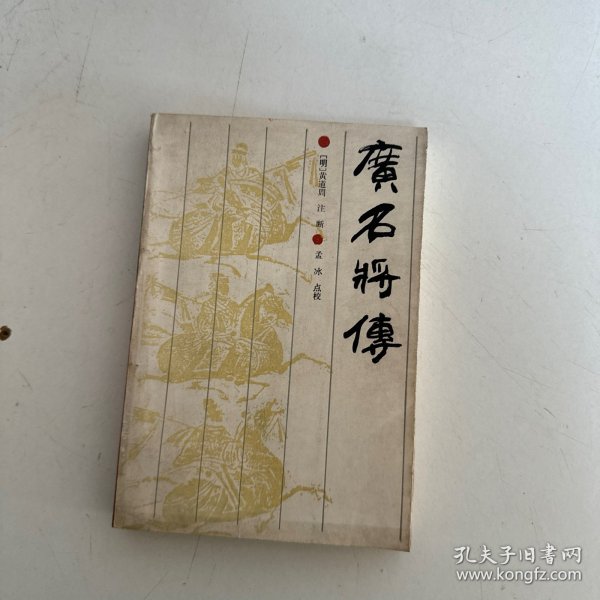 廣名將傳
[明]黄道周 注 断
孟 冰 点校
孔夫子旧书网
www.kongfz.com